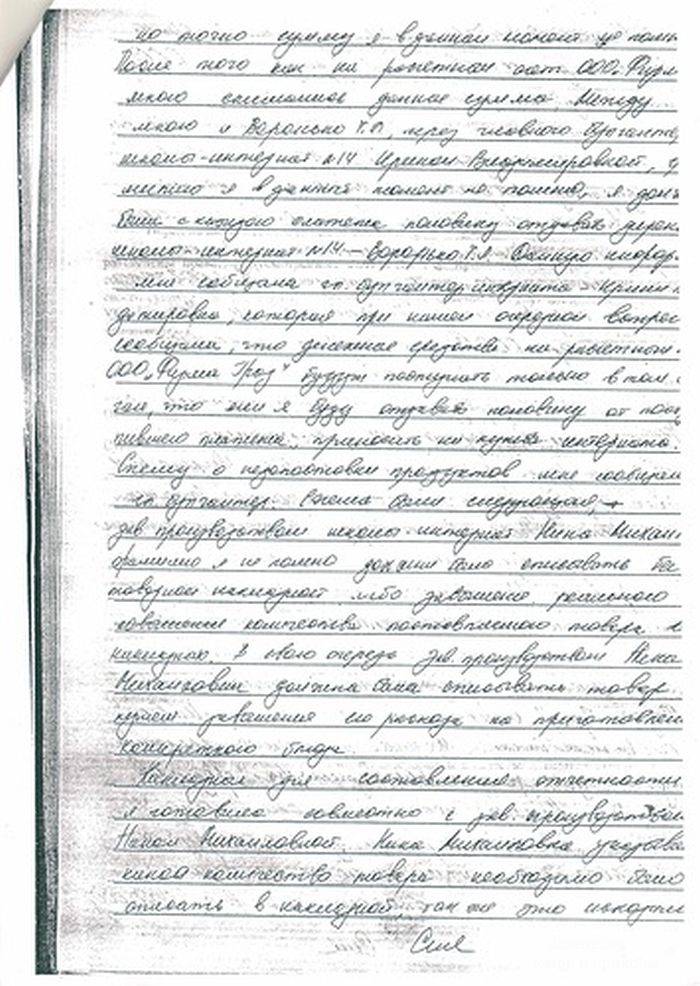 но точно сумму я в данный момент не помн
После того как на расчетный счет ООО "Фирм
мною списалась данная сумма. Между
мною и Воронько Т.П., через главного бухгалтер
школы-интернат №14 Ириной Владимировной, ф
милию я в данный момент не помню, я долж
была с каждого платежа половину отдавать дирек
школы-интернат №14 – Воронько Т.П. Данную информ
мне сообщила гл. бухгалтер интерната - Ирина
димировна, которая при нашей очередной встрече
сообщила, что денежные средства на расчетный
ООО "Фирма Град" будут поступать только в том
чае, что если я буду отдавать половину от пост
пившего платежа, приносить на нужды интерната.
Схему о недопоставки продуктов мне сообщила
гл. бухгалтер. Схема была следующая,
зав. производством школы-интернат Нина Михаил
фамилию я не помню должна была списывать без
товарной накладной либо завышение реального
завышения количества поставляемого товара
накладную. В свою очередь зав. производством Нина
Михайловна должна была списывать товар
путем завышения его расхода на приготовлен
конкретного блюда.
Накладная для составления отчетности
я готовила совместно с зав. производством
Ниной Михайловной. Нина Михайловна указыва
какое количество товара необходимо было
списать в накладной, так же это